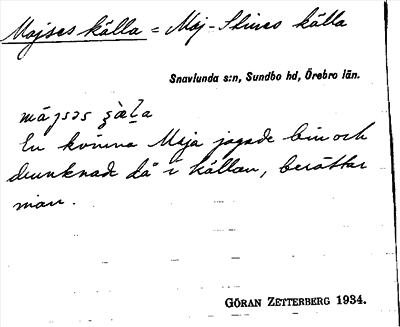 Majses källa = Maj-Stinas källa
Snavlunda s:n, Sundbo hd, Örebro län.
En kvinna Maja jagade bin och
drunknade då i källan, berättar
man.
GÖRAN ZETTERBERG 1934.